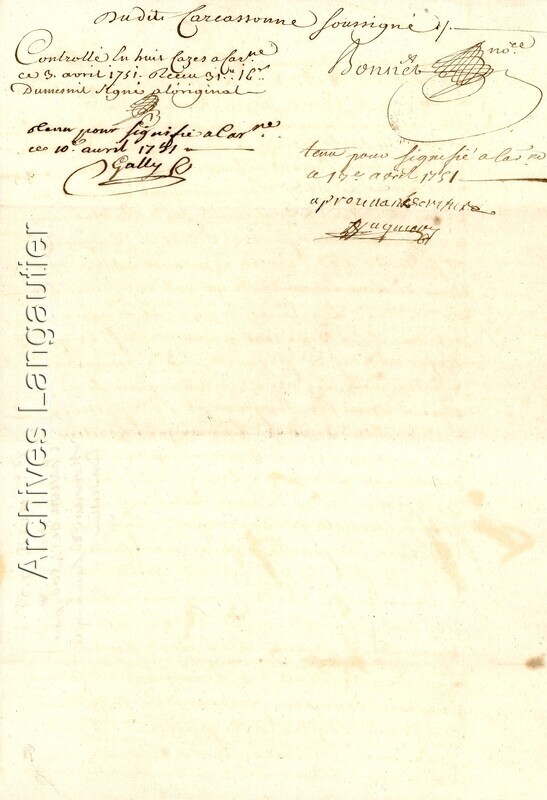 Dudit Carcassonne soussigné
Bonnet n.re
Controllé en huit cazes a Car.ne
ce 3. avril 1751. Receu 31
Dumesnil signé a loriginal
tenu pour signifié a Car.ne
ce 10.e avril 1751
Gally
tenu pour signifié a Car.ne
avril 1751
aprouvant
Archives Langautier